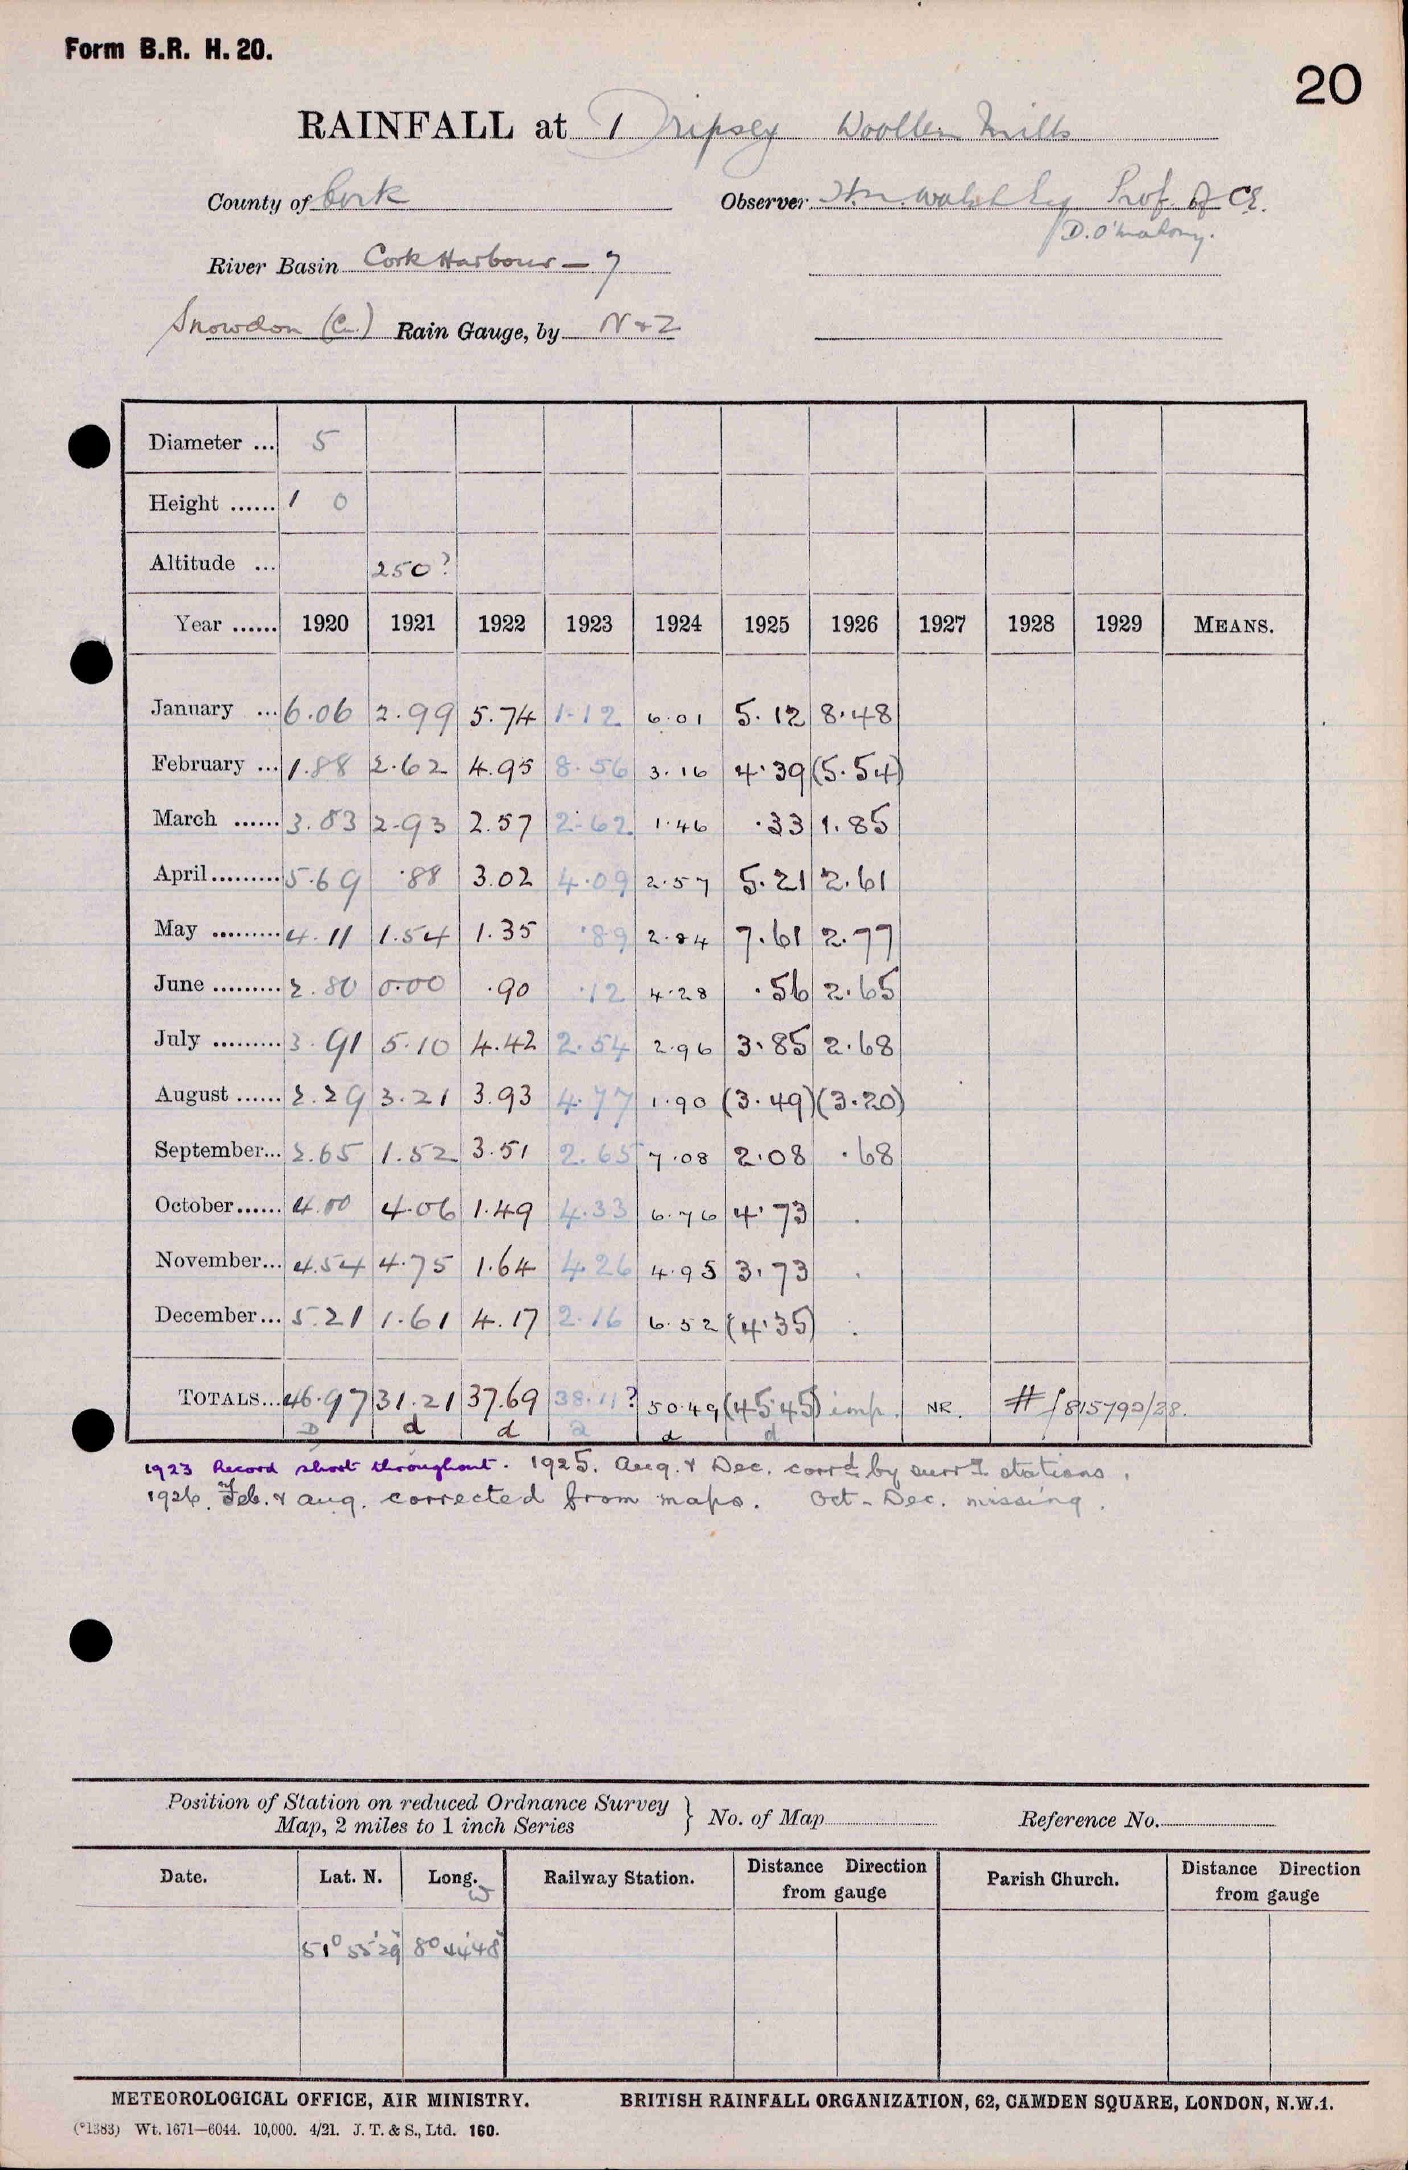 Form B.R. H. 20.
20
RAINFALL at Dripsey Woollen Mills
County of Cork Observer H.N. Walsh Esq Prof. of C.E.
D. O'Mahony.
River Basin Cork Harbour — 7
Snowdon (Cu.) Rain Gauge, by N & Z
Diameter ... 5
Height ...... 1 0
Altitude ... 250?
Year ...... 1920 1921 1922 1923 1924 1925 1926 1927 1928 1929 MEANS.
January ... 6.06 2.99 5.74 1.12 6.01 5.12 8.48
February ... 1.88 2.62 4.95 8.56 3.16 4.39 (5.54)
March ...... 3.83 2.93 2.57 2.62 1.46 .33 1.85
April ......... 5.69 .88 3.02 4.09 2.57 5.21 2.61
May ......... 4.11 1.54 1.35 .89 2.84 7.61 2.77
June ......... 2.80 0.00 .90 .12 4.28 .56 2.65
July ......... 3.91 5.10 4.42 2.54 2.96 3.85 2.68
August ...... 2.29 3.21 3.93 4.77 1.90 (3.49) (3.20)
September... 2.65 1.52 3.51 2.65 7.08 2.08 .68
October...... 4.00 4.06 1.49 4.33 6.76 4.73 .
November... 4.54 4.75 1.64 4.26 4.95 3.73 .
December... 5.21 1.61 4.17 2.16 6.52 (4.35) .
TOTALS... 46.97 31.21 37.69 38.11? 50.49 (45.45) imp. NR. # / 815790/28.
D d d a d d
1923 Record short throughout. 1925. Aug. & Dec. corrd. by surrg. stations.
1926. Feb. & Aug. corrected from maps. Oct - Dec. missing.
Position of Station on reduced Ordnance Survey
Map, 2 miles to 1 inch Series } No. of Map Reference No.
Date. Lat. N. Long. W Railway Station. Distance Direction from gauge Parish Church. Distance Direction from gauge
51° 55' 29" 8° 44' 48"
METEOROLOGICAL OFFICE, AIR MINISTRY. BRITISH RAINFALL ORGANIZATION, 62, CAMDEN SQUARE, LONDON, N.W.1.
(*1383) Wt. 1671—6044. 10,000. 4/21. J. T. & S., Ltd. 160.